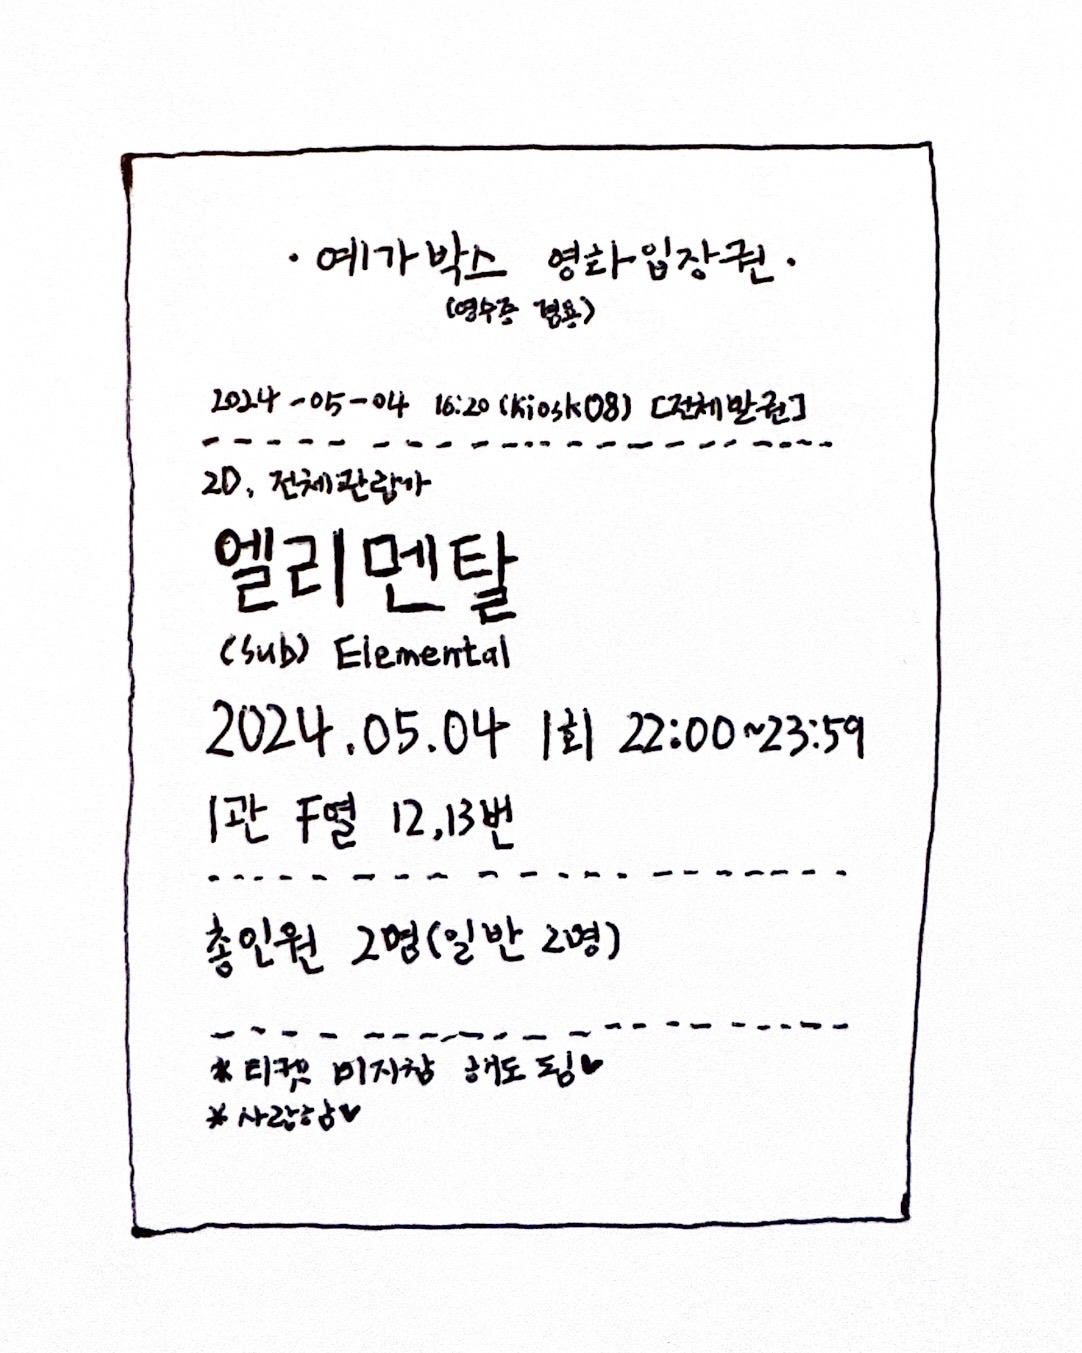 · 예가박스 영화입장권 ·
(영수증 겸용)
2024-05-04 16:20 (Kiosk08) [전체발권]
2D, 전체관람가
엘리멘탈
(Sub) Elemental
2024.05.04 1회 22:00~23:59
1관 F열 12,13번
총인원 2명(일반 2명)
* 티켓 미지참 해도 됨♥
* 사랑함♥